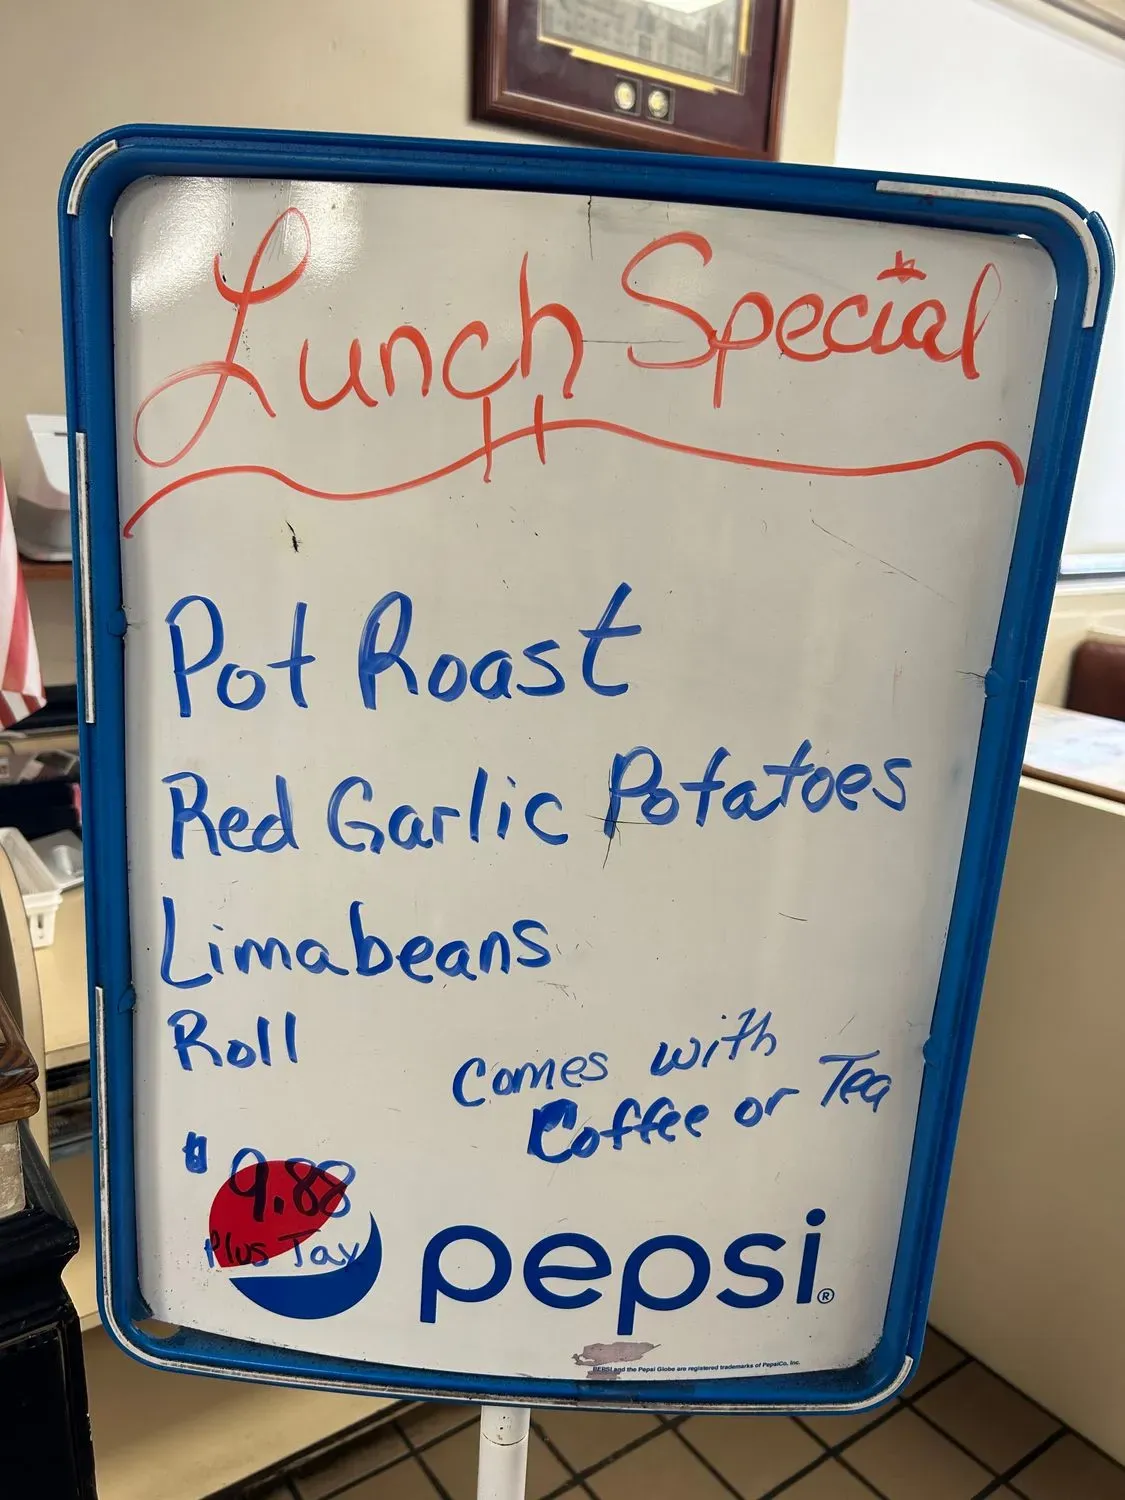 Lunch Special
Pot Roast
Red Garlic Potatoes
Limabeans
Roll
Comes with
Coffee or Tea
$9.88
Plus Tax
pepsi®
PEPSI and the Pepsi Globe are registered trademarks of PepsiCo, Inc.